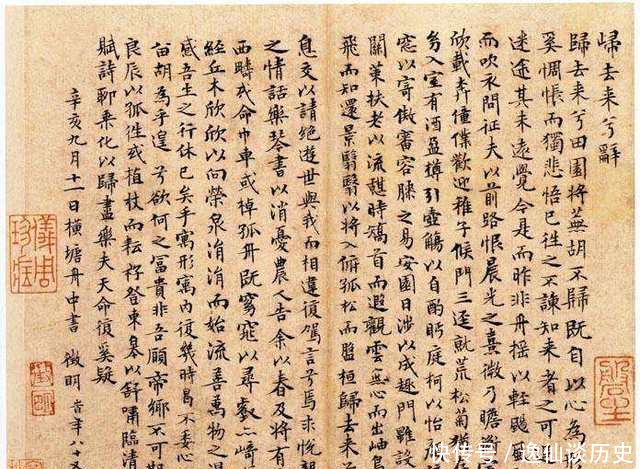 歸去来兮辭
歸去来兮田園將蕪胡不歸既自以心為
奚惆悵而獨悲悟已往之不諫知来者之可
迷途其未遠覺今是而昨非舟摇以軽颺
而吹衣問征夫以前路恨晨光之熹微乃瞻
欣載奔僮僕歡迎稚子候門三逕就荒松菊猶
㓜入室有酒盈罇引壺觴以自酌眄庭柯以怡
窓以寄傲審容膝之易安園日涉以成趣門雖設
關策扶老以流憇時矯首而遐觀雲無心而出岫鳥
飛而知還景翳翳以將入撫孤松而盤桓歸去来兮
息交以請絶遊世與我而相違復駕言兮焉求悅親
之情話樂琴書以消憂農人告余以春及將有
西疇或命巾車或棹孤舟既窈窕以尋壑亦崎
經丘木欣欣以向榮泉涓涓而始流善萬物之得
感吾生之行休已矣乎寓形寓内復幾時曷不委心
留胡為乎遑遑兮欲何之富貴非吾願帝鄉不可期
良辰以孤往或植杖而耘耔登東皋以舒嘯臨清
賦詩聊乘化以歸盡樂夫天命復奚疑
辛亥九月十一日横塘舟中書 徵明 年八十
快传号／逸仙谈历史